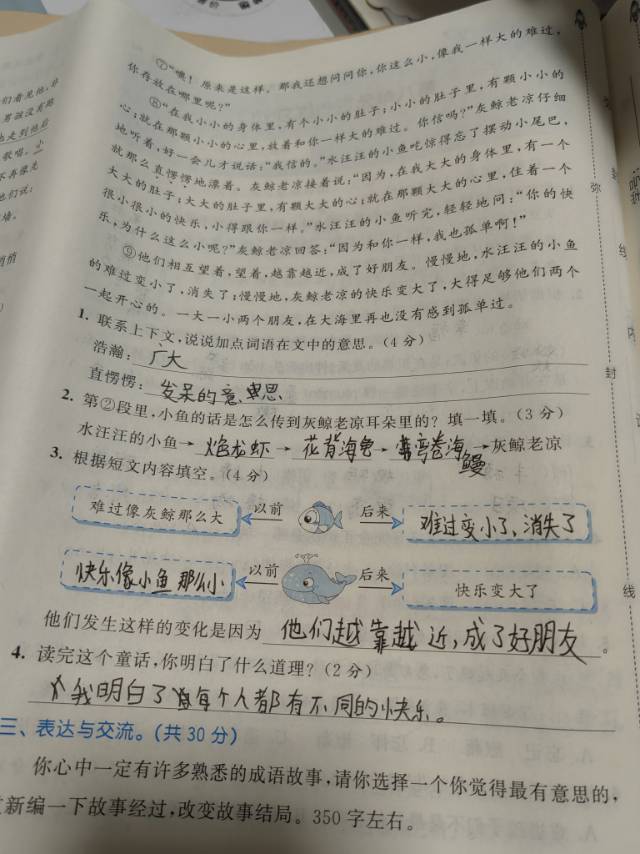 ⑦“噢！原来是这样。那我还想问问你，你这么小，像我一样大的难过，
你存放在哪里呢？”
⑧“在我小小的身体里，有个小小的肚子；小小的肚子里，有颗小小的
心；就在那颗小小的心里，放着和你一样大的难过。你信吗？”灰鲸老凉仔细
地听着，好一会儿才说话：“我信的。”水汪汪的小鱼吃惊得忘了摆动小尾巴，
就那么直愣愣地漂着。灰鲸老凉接着说：“因为，在我大大的身体里，有一个
大大的肚子；大大的肚子里，有颗大大的心；就在那颗大大的心里，住着一个
很小很小的快乐，小得跟你一样。”水汪汪的小鱼听完，轻轻地问：“你的快
乐，为什么这么小呢？”灰鲸老凉回答：“因为和你一样，我也孤单啊！”
⑨他们相互望着，望着，越靠越近，成了好朋友。慢慢地，水汪汪的小鱼
的难过变小了，消失了；慢慢地，灰鲸老凉的快乐变大了，大得足够他们两个
一起开心的。一大一小两个朋友，在大海里再也没有感到孤单过。
1. 联系上下文，说说加点词语在文中的意思。（4 分）
浩瀚：广大
直愣愣：发呆的意思
2. 第②段里，小鱼的话是怎么传到灰鲸老凉耳朵里的？填一填。（3 分）
水汪汪的小鱼→ 焰龙虾 → 花背海龟 → 弯卷海鳗 →灰鲸老凉
3. 根据短文内容填空。（4 分）
难过像灰鲸那么大 以前 后来 难过变小了、消失了
快乐像小鱼那么小 以前 后来 快乐变大了
他们发生这样的变化是因为 他们越靠越近，成了好朋友 。
4. 读完这个童话，你明白了什么道理？（2 分）
我明白了每个人都有不同的快乐。
三、表达与交流。（共 30 分）
你心中一定有许多熟悉的成语故事，请你选择一个你觉得最有意思的，
新编一下故事经过，改变故事结局。350 字左右。
弥
线
封
线